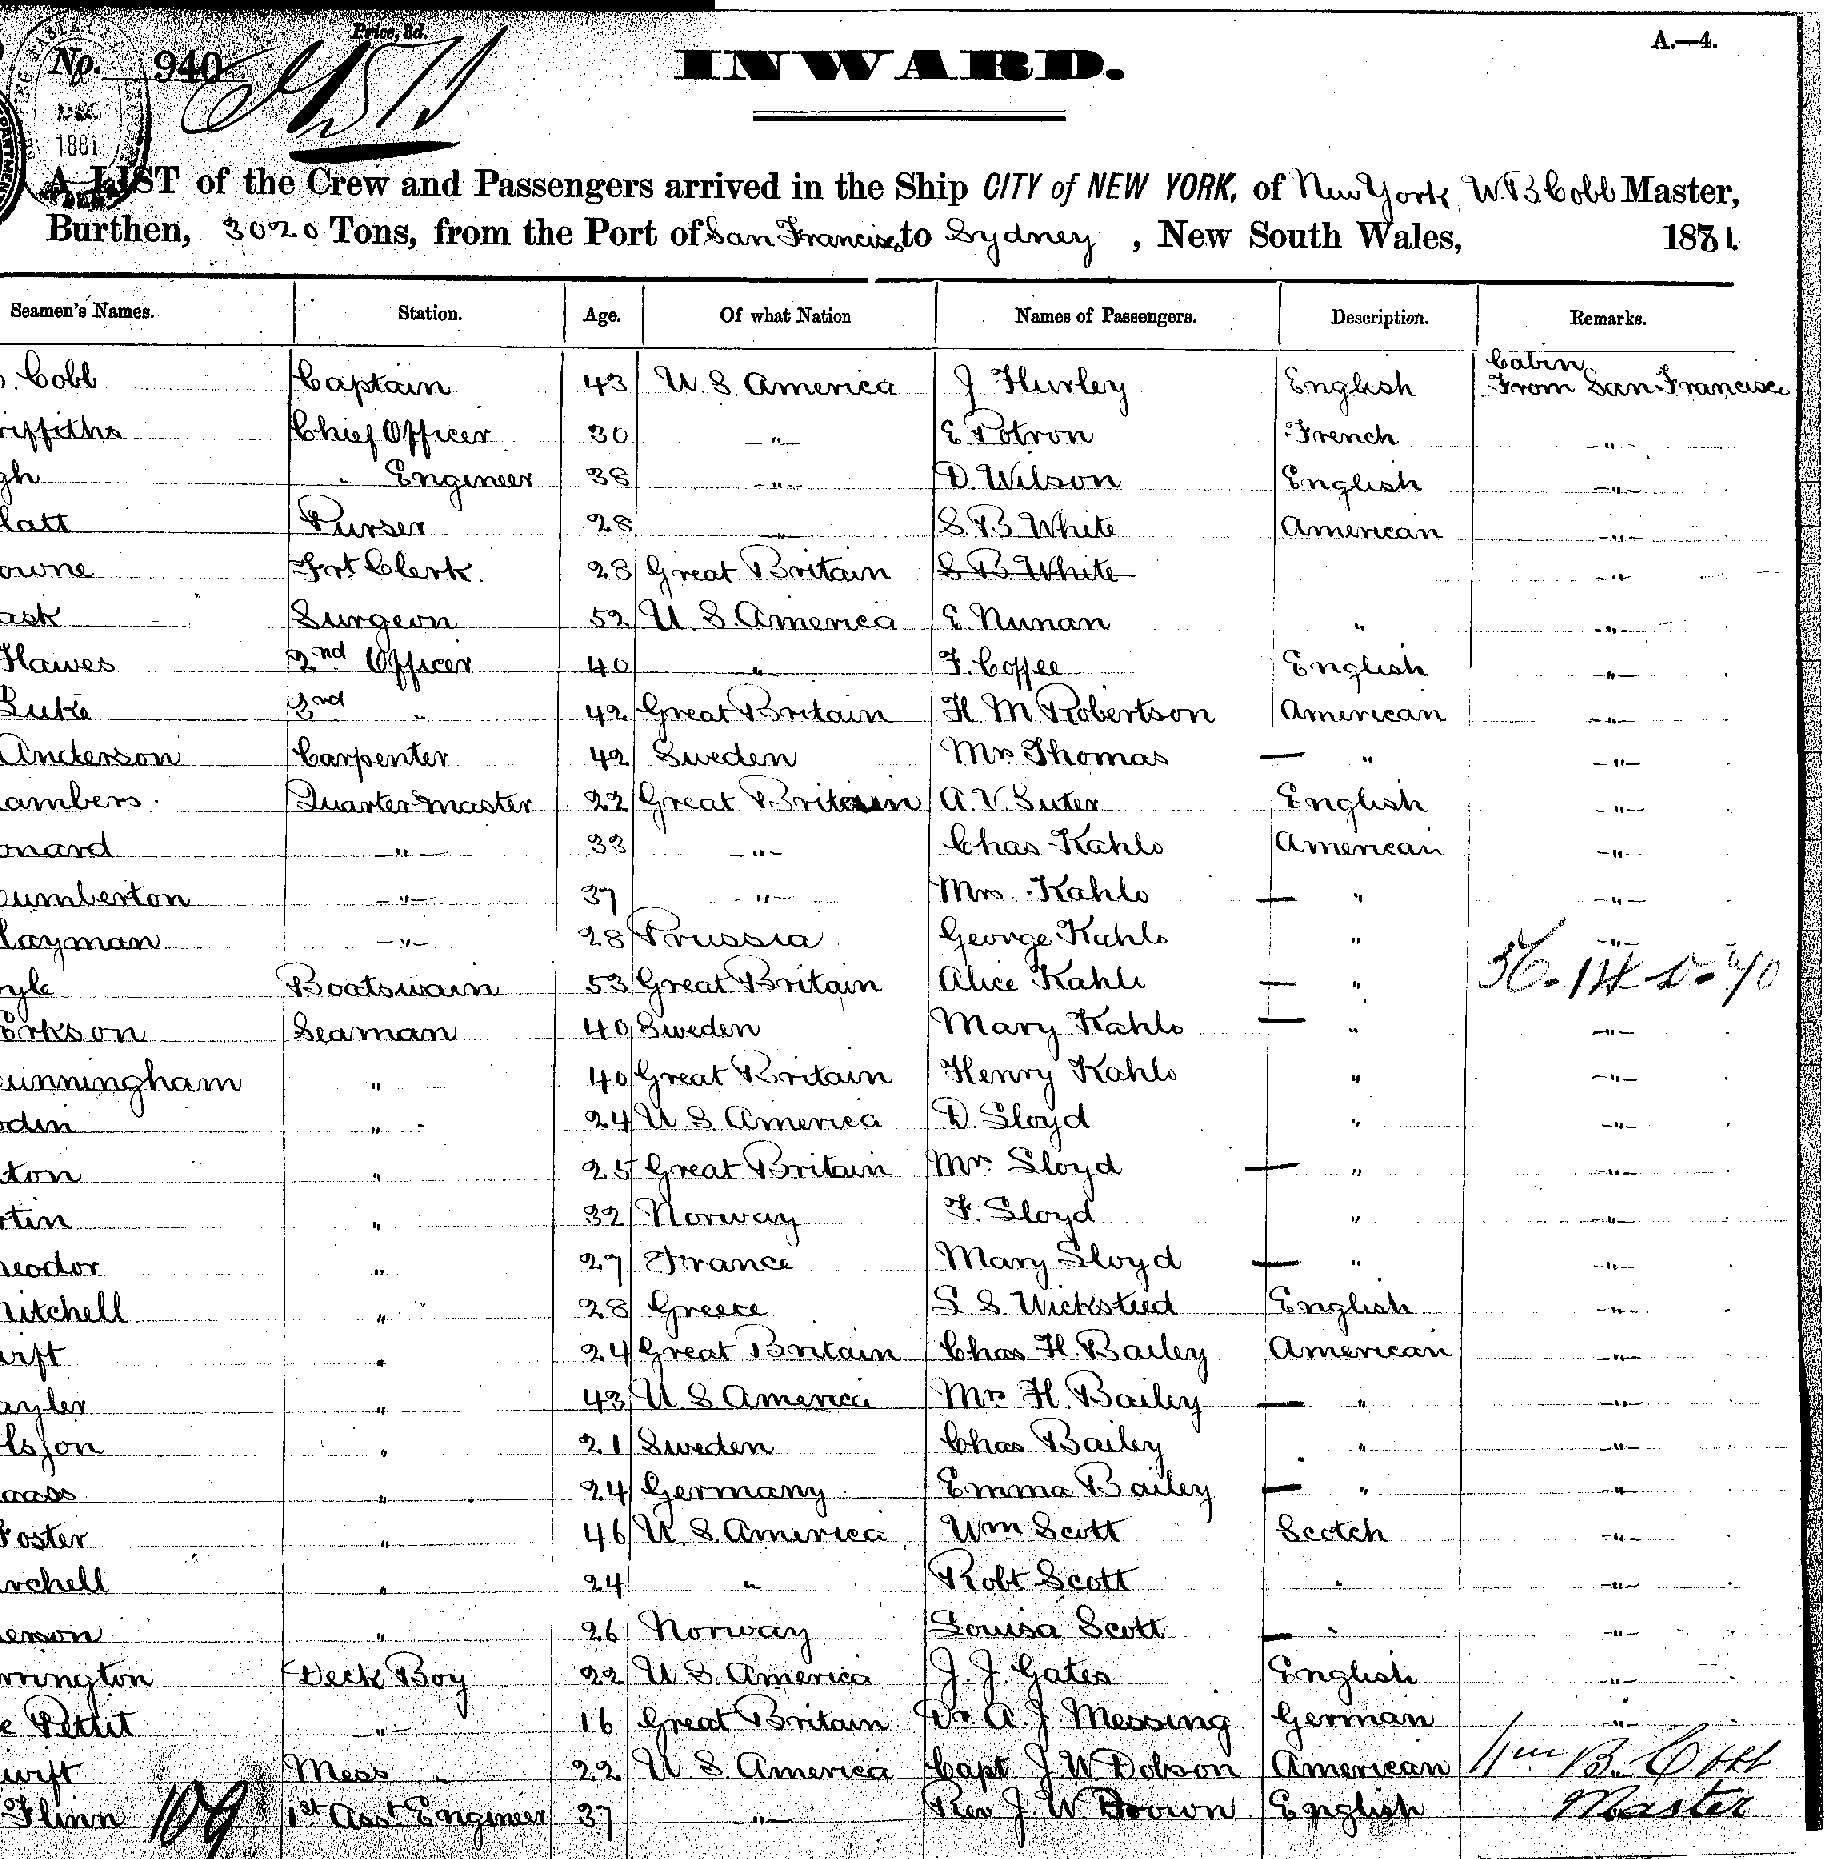 Price, 3d.
A.—4.
No. 940
INWARD.
1881
A LIST of the Crew and Passengers arrived in the Ship CITY of NEW YORK, of New York, W. B. Cobb Master,
Burthen, 3020 Tons, from the Port of San Francisco to Sydney, New South Wales, 1881.
Seamen's Names. Station. Age. Of what Nation Names of Passengers. Description. Remarks.
Cobb Captain 43 U S America J Hurley English Cabin From San Francisco
riffiths Chief Officer 30 " E Potron French "
gh " Engineer 38 " D. Wilson English "
latt Purser 28 " S. B White American "
owne Frt Clerk. 28 Great Britain S B White "
ask Surgeon 52 U. S. America E. Nunan " "
Hawes 2nd Officer 40 " F. Coffee English "
Luke 3rd " 42 Great Britain H M Robertson American "
Anderson Carpenter 42 Sweden Mrs Thomas — " "
ambers. Quarter master 22 Great Britain A. V. Suter English "
onard " 33 " Chas Kahlo American "
umberton " 37 " Mrs. Kahlo — " "
layman " 28 Prussia George Kahlo " "
oyle Boatswain 53 Great Britain Alice Kahlo — "
orkson Seaman 40 Sweden Mary Kahlo — " "
Cunningham " 40 Great Britain Henry Kahlo " "
odin " 24 U S America D. Lloyd " "
ton " 25 Great Britain Mrs. Lloyd — " "
rtin " 32 Norway F. Lloyd " "
heodor " 27 France Mary Lloyd — " "
Mitchell " 28 Greece S. S. Wicksteed English "
wift " 24 Great Britain Chas H. Bailey American "
ayler " 43 U S America Mrs H. Bailey — " "
lsson " 21 Sweden Chas Bailey " "
aass " 24 Germany Emma Bailey — " "
Foster " 46 U. S. America Wm Scott Scotch "
rchell " 24 " Robt Scott " "
erson " 26 Norway Louisa Scott — " "
rrington Deck Boy 22 U S America J. J. Gates English "
e Pettit " 16 Great Britain Dr A. J. Messing German "
wift Mess " 22 U S. America Capt J W Dobson American Wm B. Cobb
Flinn 109 1st Asst Engineer 37 " Rev J. W Brown English Master